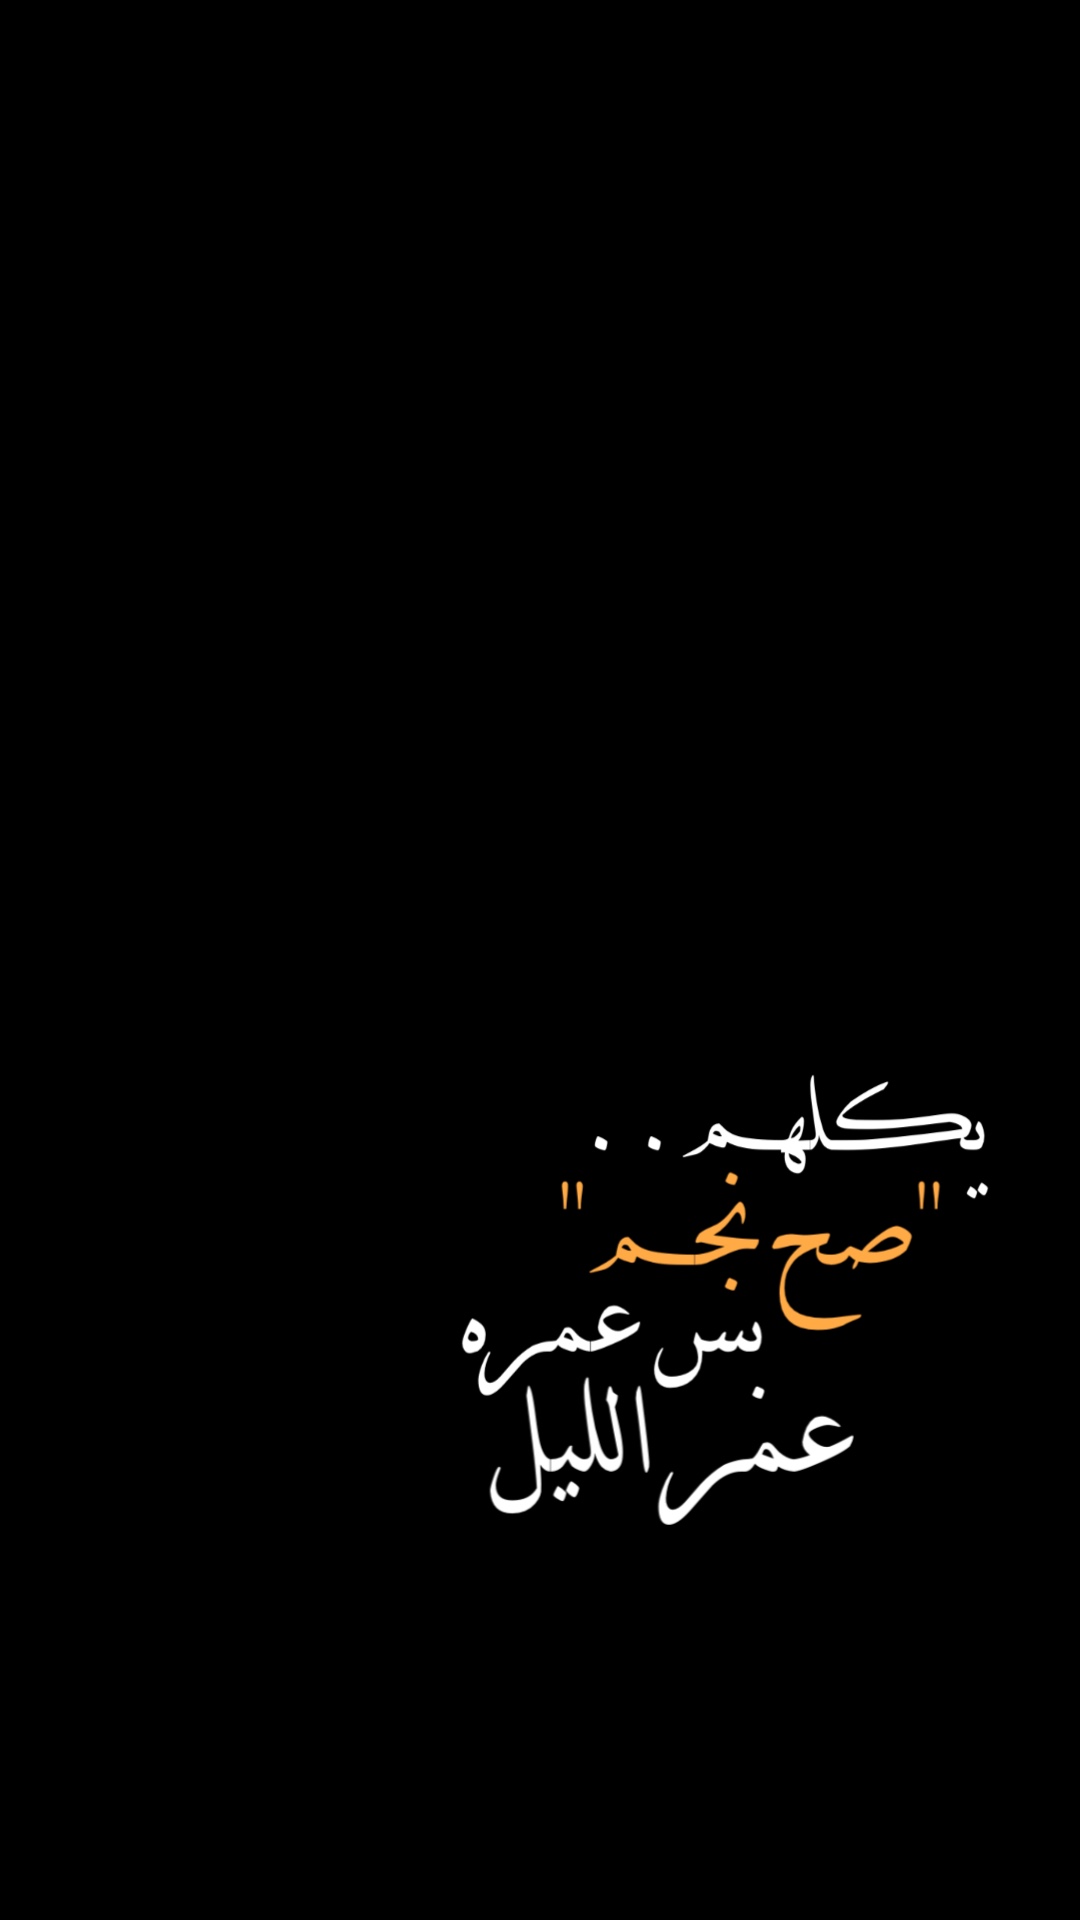 يكلهم . .
"صح نجم"
بس عمره
عمر الليل